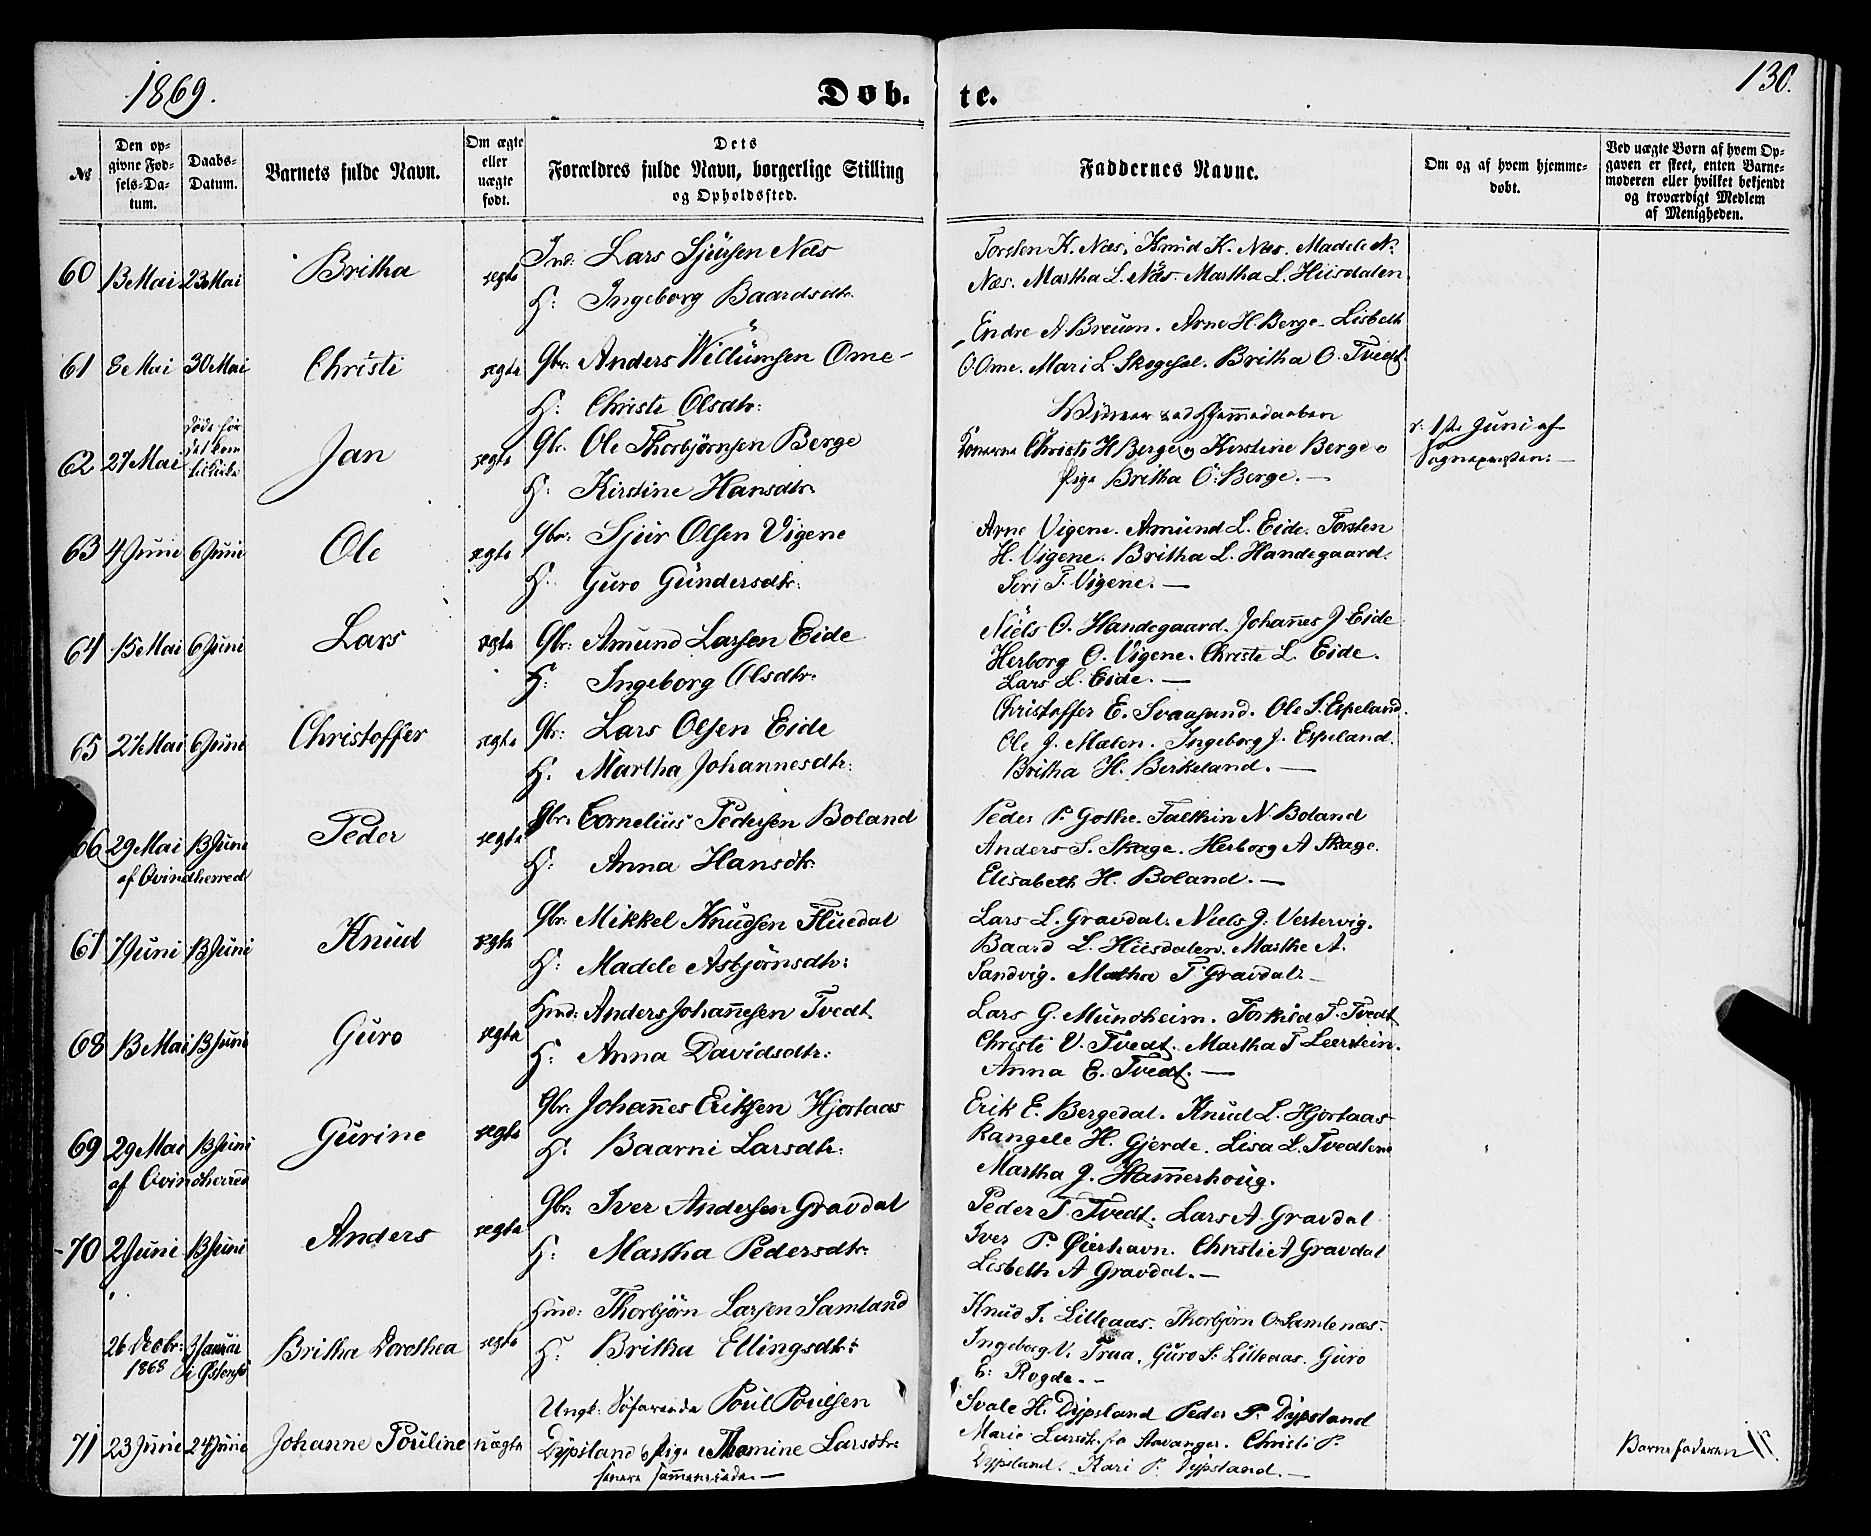 1869.
Døb-
te.
130.
№
Den op-
givne Fød-
sels-Da-
tum.
Daabs-
Datum.
Barnets fulde Navn.
Om ægte
eller
uægte
født.
Dets
Forældres fulde Navn, borgerlige Stilling
og Opholdssted.
Faddernes Navne.
Om og af hvem hjemme-
døbt.
Ved uægte Børn af hvem Op-
gaven er skeet, enten Barne-
moderen eller hvilket bekjendt
og troværdigt Medlem
af Menigheden.
60 13 Mai 23 Mai Britha ægte
Lars Sjursen Næs
H: Ingeborg Baardsdtr.
Torsten K. Næs. Knud K. Næs. Madele N.
Næs. Martha L. Næs. Martha L. Hiisdalen.
61 8 Mai 30 Mai Christi ægte
Gbr: Anders Willumsen Ome-
H: Christi Olsdtr:
Endre A. Breum. Arne H. Berge. Lisbeth
O. Ome. Mari L. Skogesal. Britha O. Tvedt.
62 27 Mai døde før det kom til Kirke Jan ægte
Gbr. Ole Thorbjørnsen Berge
H: Kirstine Hansdtr.
Vidner ved Hjemmedaaben
Konerne Christi H. Berge og Kirstine Berge o
Pige Britha O. Berge. —
1ste Juni af
Sognepresten: —
63 4 Juni 6 Juni Ole ægte
Gbr: Sjur Olsen Vigene
H: Guro Gundersdtr:
Arne Vigene. Amund L. Eide. Torsten
H. Vigene. Britha L. Handegaard.
Siri T. Vigene. —
64 15 Mai 6 Juni Lars ægte
Gbr: Amund Larsen Eide
H: Ingeborg Olsdtr:
Niels O. Handegaard. Johannes J. Eide
Herborg O. Vigene. Christi L. Eide.
Lars L. Eide. —
65 27 Mai 6 Juni Christoffer ægte
Gbr: Lars Olsen Eide
H. Martha Johannesdtr.
Christoffer E. Svaasand. Ole S. Espeland.
Ole J. Mælen. Ingeborg J. Espeland.
Britha H. Berkeland. —
66 29 Mai 13 Juni Peder ægte
af Qvindherred
Gbr: Cornelius Pedersen Boland
H: Anna Hansdtr.
Peder P. Gothe. Falthin N. Boland
Anders S. Skage. Herborg A. Skage.
Elisabeth H. Boland. —
67 7 Juni 13 Juni Knud ægte
Gbr. Mikkel Knudsen Fluedal
H: Madele Asbjørnsdtr:
Lars L. Gravdal. Niels J. Vestervig.
Baard L. Hiisdalen. Marthe A.
Sandvig. Matha T. Gravdal. —
68 13 Mai 13 Juni Guro ægte
Hmd: Anders Johannesen Tvedt
H: Anna Davidsdtr:
Lars G. Mundheim. Torkild T. Tvedt
Christi O. Tvedt. Martha T. Leerstein.
Anna E. Tvedt. —
69 29 Mai 13 Juni Gurine ægte
af Qvindherred
Gbr: Johannes Eriksen Hjortaas
H. Baarni Larsdtr:
Erik E. Bergedal. Knud L. Hjortaas
Rangele H. Gjerde. Lisa L. Tvedtene
Martha J. Hammerhoug.
70 2 Juni 13 Juni Anders ægte
Gbr: Iver Andersen Gravdal
H: Martha Pedersdtr:
Peder T. Tvedt. Lars A. Gravdal
Iver P. Øierhavn. Christi A Gravdal
Lisbeth A Gravdal. —
26 Decbr: 1868 3 Januar i Østensø Britha Dorothea ægte
Hmd: Thorbjørn Larsen Samland
H: Britha Ellingsdtr:
Knud T. Lilleaas. Thorbjørn O. Samlenæs.
Ingeborg V. Traa. Guro S. Lilleaas. Guro
E. Rogde. -
71 23 Juni 24 Juni Johanne Pouline uægte
Ungk: Søfarende Poul Poulsen
Dypsland og Pige Thomine Larsdtr:
Svale H. Dypsland Peder P. Dypsland
Marie Larsdtr fra Stavanger. Christi P.
Dypsland. Kari P. Dypsland. —
Barnefaderen